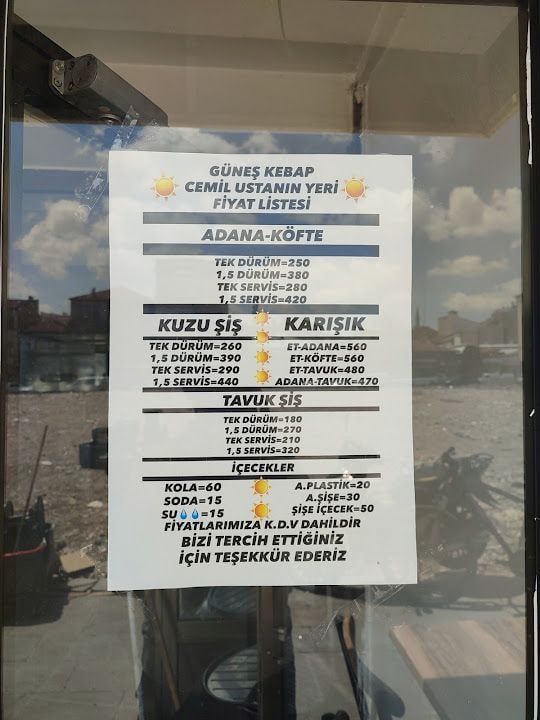 GÜNEŞ KEBAP
CEMİL USTANIN YERİ
FİYAT LİSTESİ
ADANA-KÖFTE
TEK DÜRÜM=250
1,5 DÜRÜM=380
TEK SERVİS=280
1,5 SERVİS=420
KUZU ŞİŞ
TEK DÜRÜM=260
1,5 DÜRÜM=390
TEK SERVİS=290
1,5 SERVİS=440
KARIŞIK
ET-ADANA=560
ET-KÖFTE=560
ET-TAVUK=480
ADANA-TAVUK=470
TAVUK ŞİŞ
TEK DÜRÜM=180
1,5 DÜRÜM=270
TEK SERVİS=210
1,5 SERVİS=320
İÇECEKLER
KOLA=60
SODA=15
SU💧💧=15
A.PLASTİK=20
A.ŞİŞE=30
ŞİŞE İÇECEK=50
FİYATLARIMIZA K.D.V DAHİLDİR
BİZİ TERCİH ETTİĞİNİZ
İÇİN TEŞEKKÜR EDERİZ